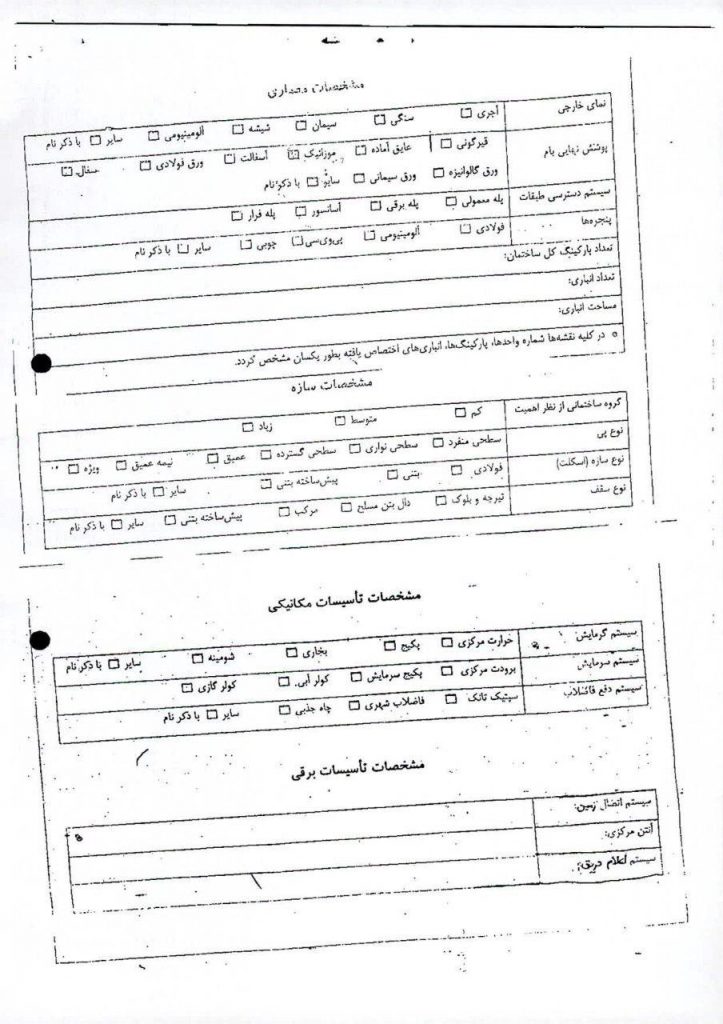 مشخصات معماری
نمای خارجی آجری □ سنگی □ سیمان □ شیشه □ آلومینیومی □ سایر □ با ذکر نام
پوشش نهایی بام قیرگونی □ عایق آماده □ موزائیک □ آسفالت □ ورق فولادی □ سفال □
ورق گالوانیزه □ ورق سیمانی □ سایر □ با ذکر نام
سیستم دسترسی طبقات پله معمولی □ پله برقی □ آسانسور □ پله فرار □
پنجره‌ها فولادی □ آلومینیومی □ پی‌وی‌سی □ چوبی □ سایر □ با ذکر نام
تعداد پارکینگ کل ساختمان:
تعداد انباری:
مساحت انباری:
در کلیه نقشه‌ها شماره واحدها، پارکینگ‌ها، انباری‌های اختصاص یافته بطور یکسان مشخص گردد.
مشخصات سازه
گروه ساختمانی از نظر اهمیت کم □ متوسط □ زیاد □
نوع پی سطحی منفرد □ سطحی نواری □ سطحی گسترده □ عمیق □ نیمه عمیق □ ویژه □
نوع سازه (اسکلت) فولادی □ بتنی □ پیش‌ساخته بتنی □ سایر □ با ذکر نام
نوع سقف تیرچه و بلوک □ دال بتن مسلح □ مرکب □ پیش‌ساخته بتنی □ سایر □ با ذکر نام
مشخصات تأسیسات مکانیکی
سیستم گرمایش حرارت مرکزی □ پکیج □ بخاری □ شومینه □ سایر □ با ذکر نام
سیستم سرمایش برودت مرکزی □ پکیج سرمایش □ کولر آبی □ کولر گازی □
سیستم دفع فاضلاب سپتیک تانک □ فاضلاب شهری □ چاه جذبی □ سایر □ با ذکر نام
مشخصات تأسیسات برقی
سیستم اتصال زمین:
آنتن مرکزی:
سیستم اعلام حریق: